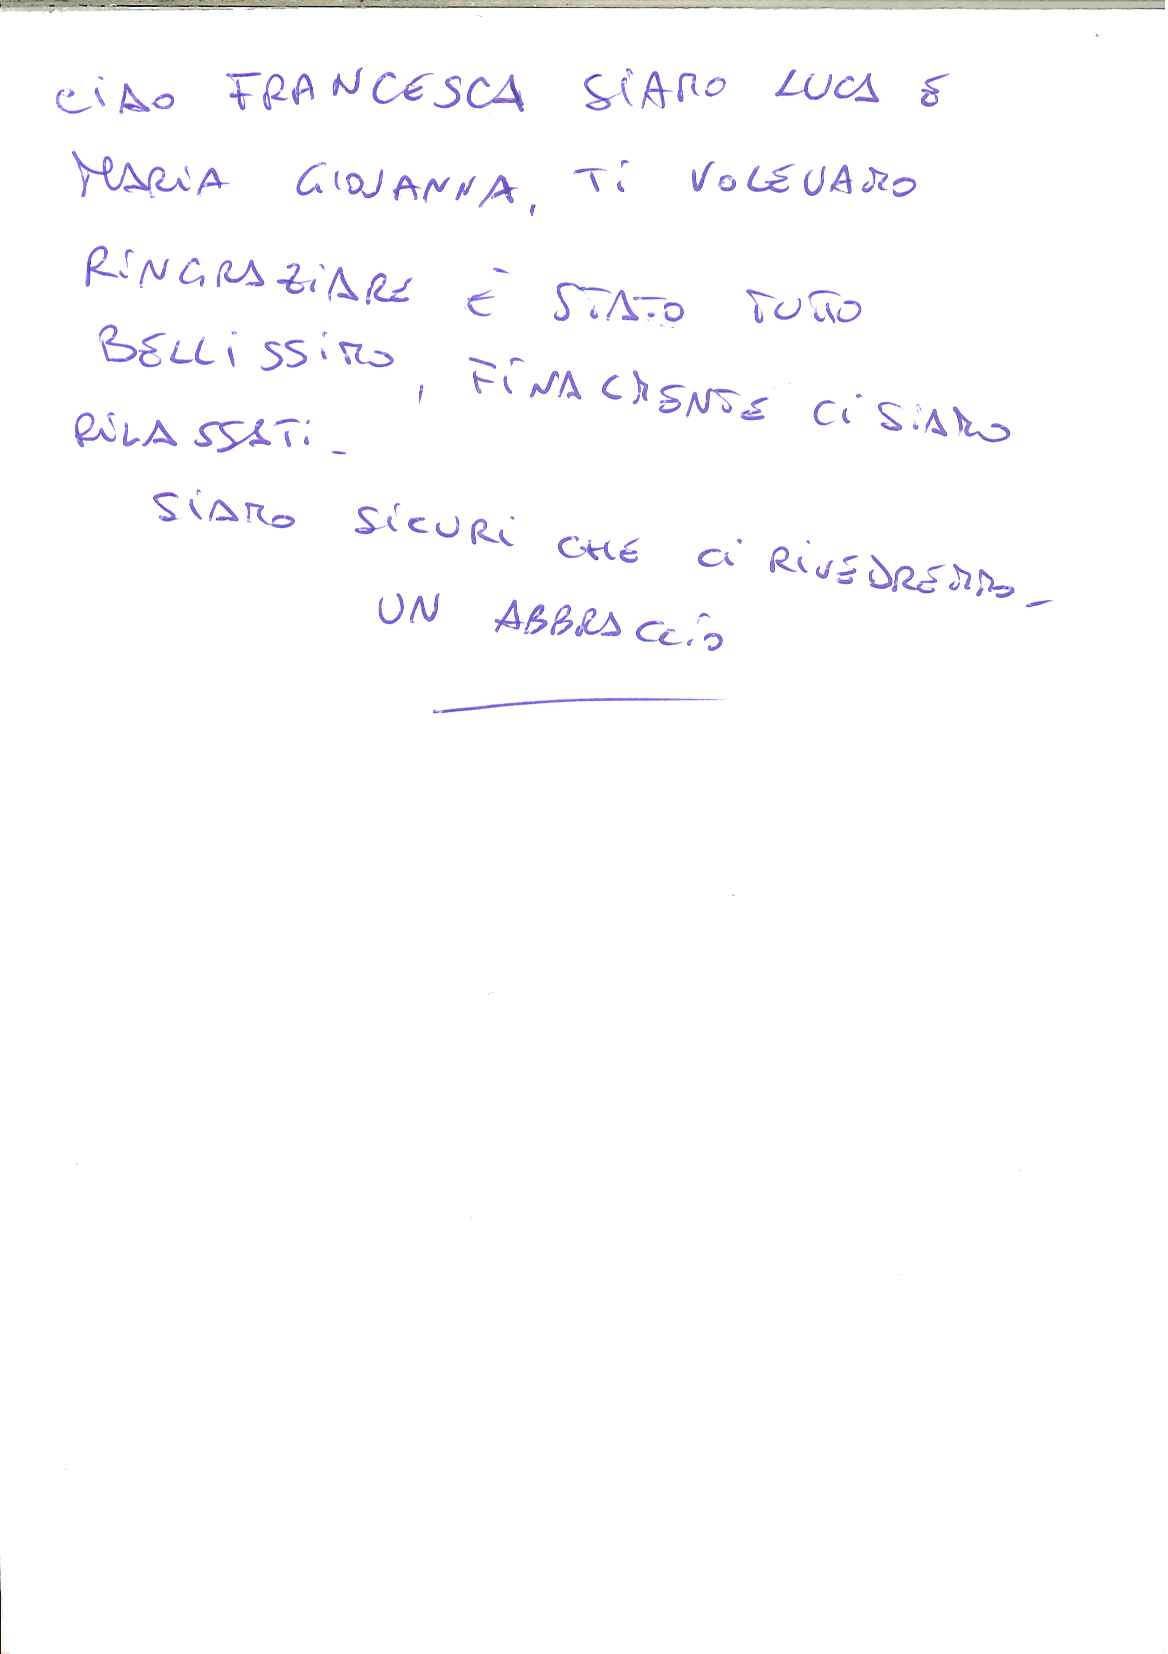 CIAO FRANCESCA SIAMO LUCA E
MARIA GIOVANNA, TI VOLEVAMO
RINGRAZIARE È STATO TUTTO
BELLISSIMO, FINALMENTE CI SIAMO
RILASSATI-
SIAMO SICURI CHE CI RIVEDREMO-
UN ABBRACCIO